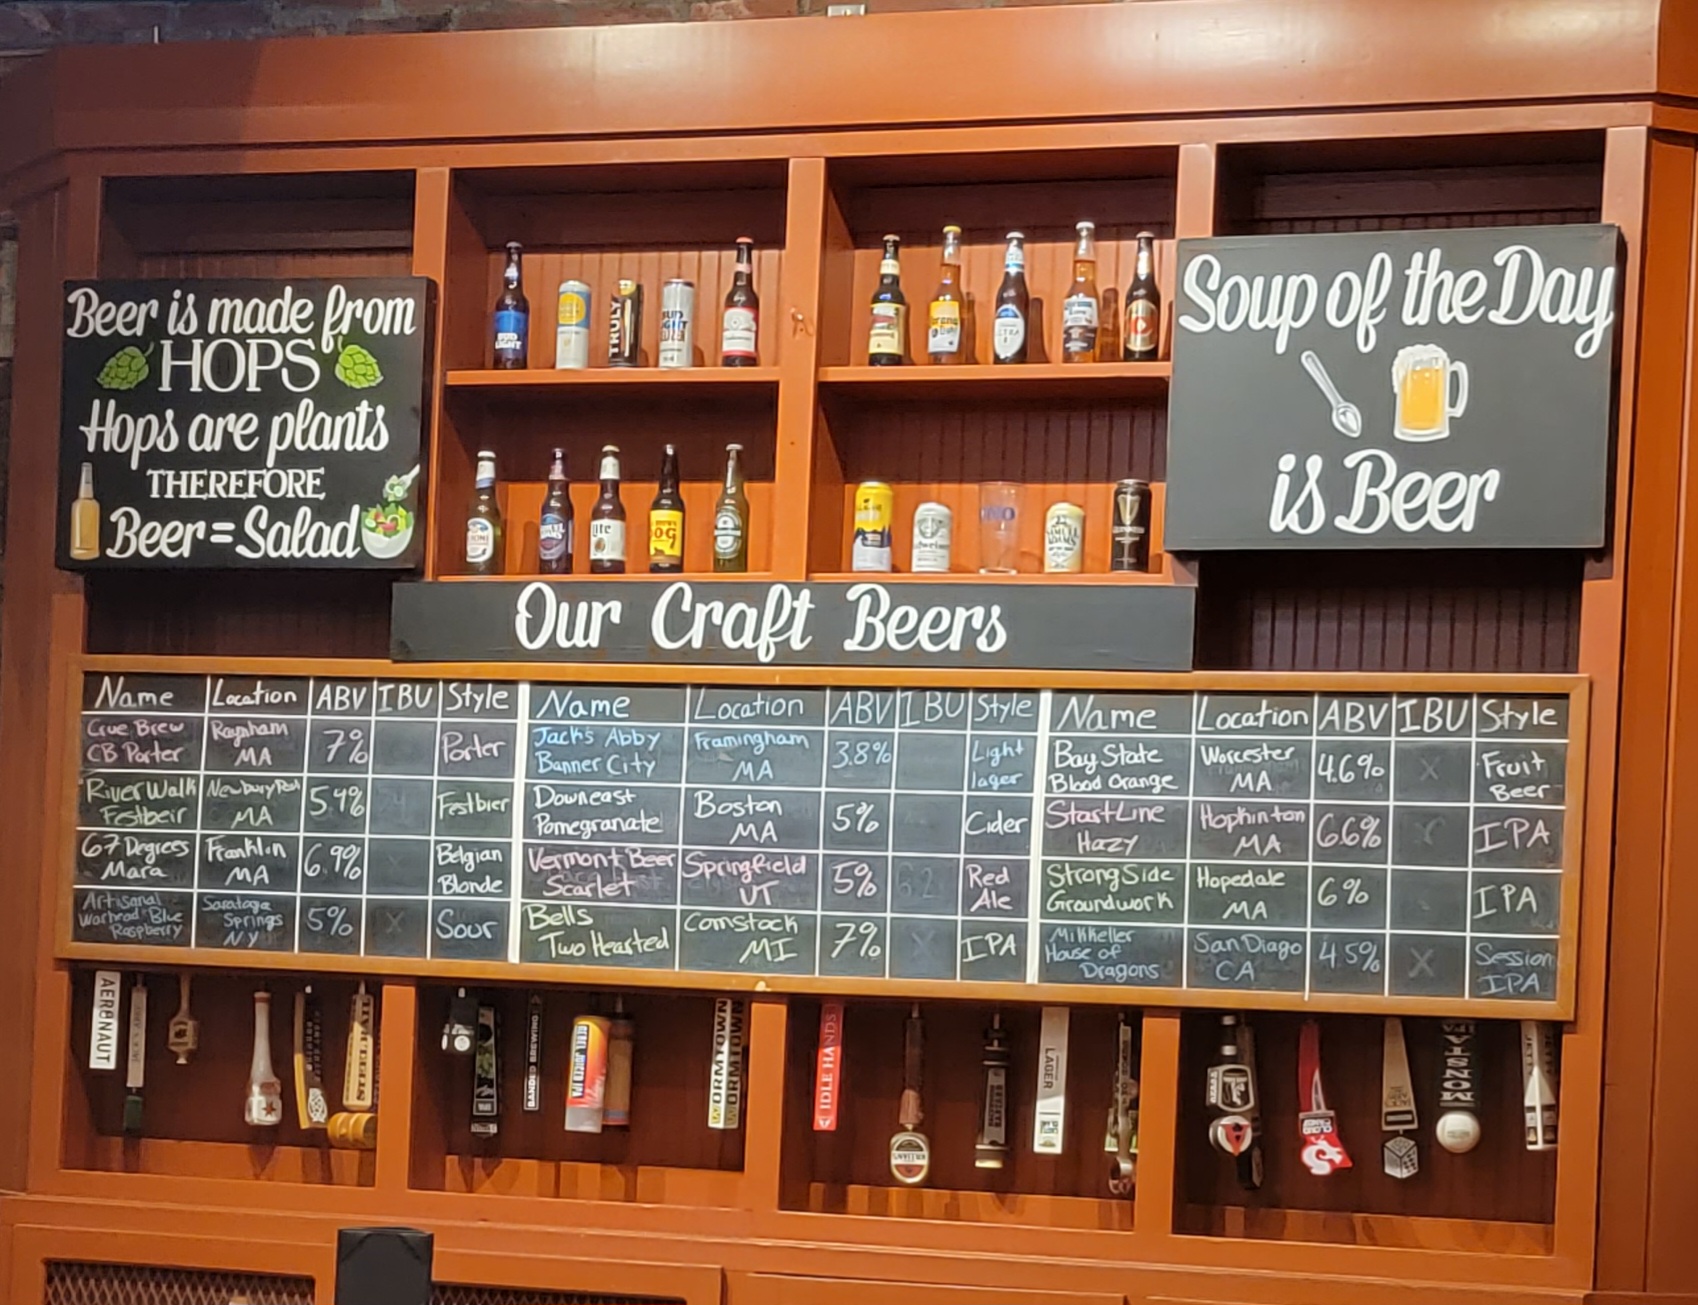 Beer is made from
HOPS
Hops are plants
THEREFORE
Beer = Salad
BUD
LIGHT
TRULY
Soup of the Day
is Beer
Lite
SAMUEL
ADAMS
Our Craft Beers
Name Location ABV IBU Style
Crue Brew
CB Porter
Raynham
MA
7%
Porter
River Walk
Festbeir
MA
Festbier
67 Degrees
Mara
Franklin
MA
6.9%
Belgian
Blonde
Artisanal
Warhead Blue
Raspberry
Saratoga
Springs
NY
5%
X
Sour
Name Location ABV IBU Style
Jack's Abby
Banner City
Framingham
MA
3.8%
Light
lager
Downeast
Pomegranate
Boston
MA
5%
Cider
Vermont Beer
Scarlet
Springfield
VT
5%
Red
Ale
Bells
Two Hearted
Comstock
MI
7%
X
IPA
Name Location ABV IBU Style
Bay State
Blood Orange
Worcester
MA
4.6%
X
Fruit
Beer
Start Line
Hazy
Hopkinton
MA
6.6%
IPA
Strong Side
Groundwork
Hopedale
MA
6%
IPA
Mikkeller
House of
Dragons
San Diago
CA
4.5%
X
Session
IPA
AERONAUT
WORMTOWN
WORMTOWN
IDLE HANDS
LAGER
MONSTAH